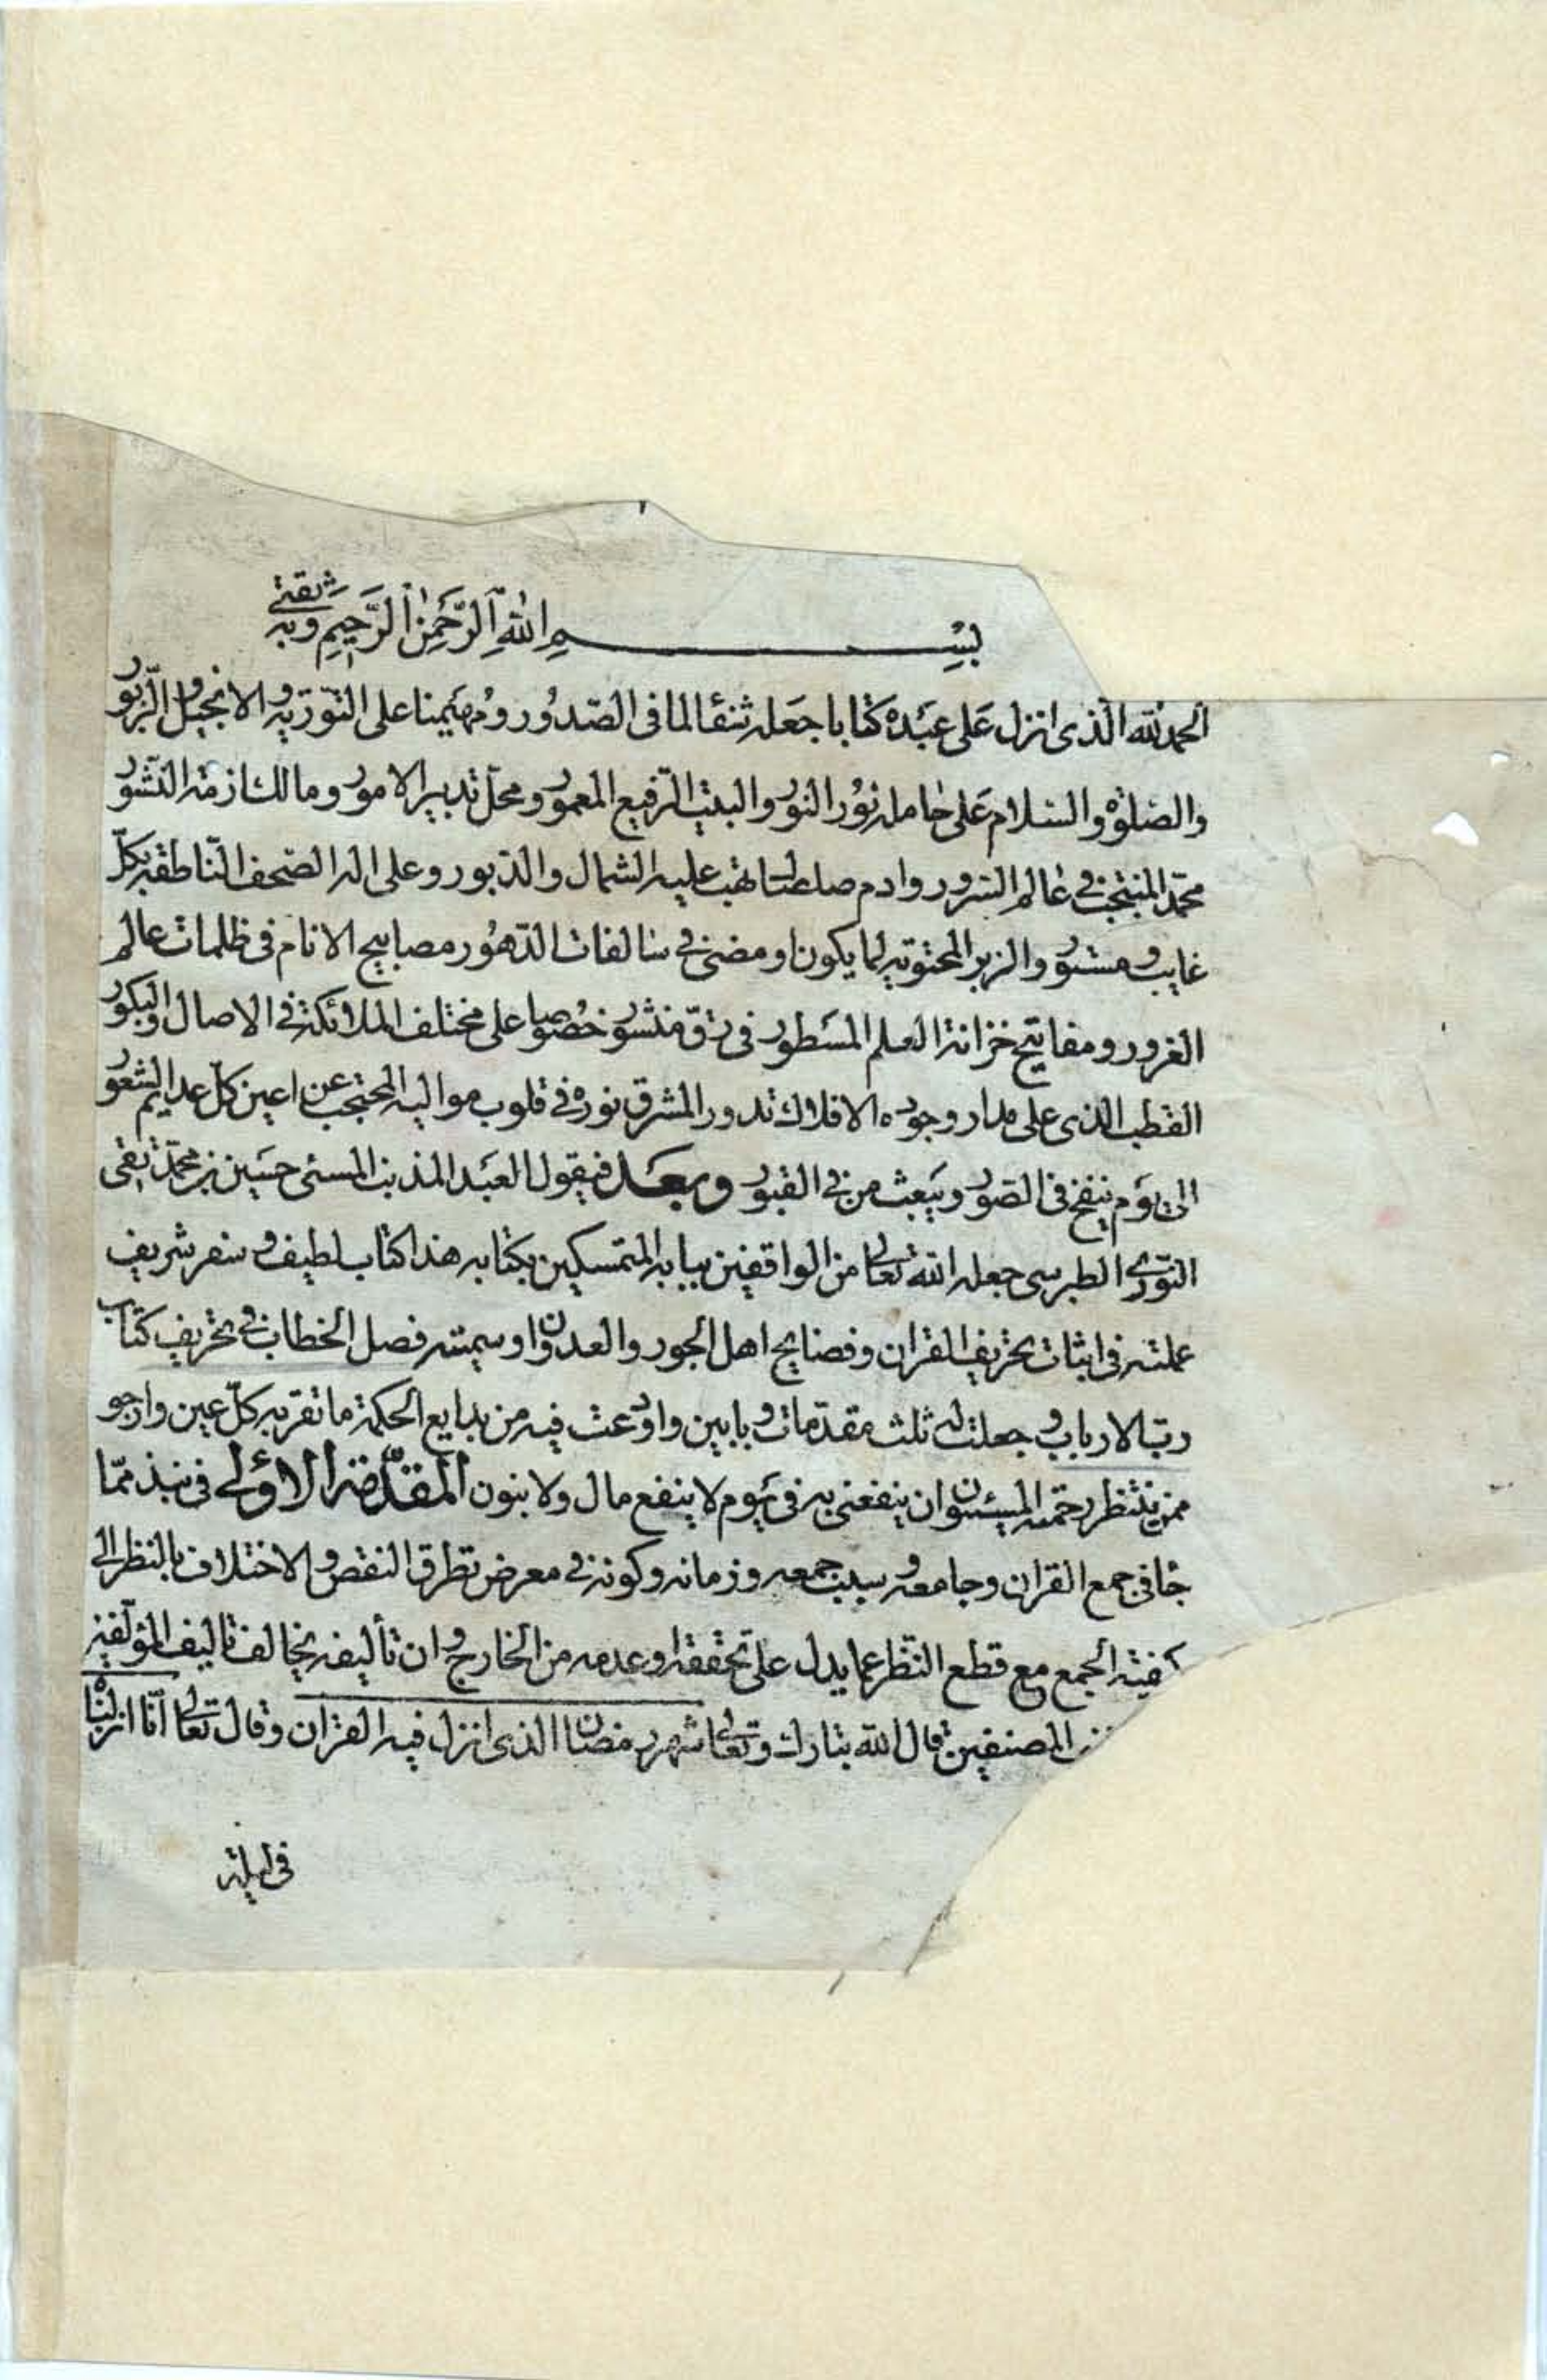 بِسْمِ اللهِ الرَّحْمٰنِ الرَّحِيمِ وبه ثقتي
الحمد لله الذى انزل على عبده كتابا جعله شفآء لما فى الصّدور ومهيمنا على التّورية والانجيل والزّبور
والصّلوة والسلام على حامله نور النور والبيت الرّفيع المعمور ومحلّ تدبير الامور ومالك ازمة النّشور
محمّد المنتجب فى عالم السّرور وادم صلصال تهب عليه الشمال والدّبور وعلى اله الصّحف النّاطقة بكلّ
غايب ومستور والزبر المحتوية لما يكون او مضى فى سالفات الدّهور مصابيح الانام فى ظلمات عالم
الغرور ومفاتيح خزانة العلم المسطور فى رقّ منشور خصوصا على مختلف الملائكة فى الاصال والبكور
القطب الذى على مدار وجوده الافلاك تدور المشرق نوره فى قلوب مواليه المحتجب عن اعين كلّ عديم الشعور
الى يوم ينفخ فى الصّور ويبعث من فى القبور وبعد فيقول العبد المذنب المسئ حسين بن محمّد تقى
النّورى الطبرسى جعله الله تعالى من الواقفين ببابه المتمسكين بكتابه هذا كتاب لطيف وسفر شريف
عملته فى اثبات تحريف القران وفضايح اهل الجور والعدوان وسميته فصل الخطاب فى تحريف كتاب
ربّ الارباب وجعلت له ثلث مقدّمات وبابين واودعت فيه من بدايع الحكمة ما تقر به كلّ عين وارجو
ممن ينتظر رحمته المسيئون ان ينفعنى به فى يوم لا ينفع مال ولا بنون المقدّمة الاولى فى نبذ ممّا
جاء فى جمع القران وجامعه وسبب جمعه وزمانه وكونه فى معرض تطرق النقص والاختلاف بالنظر الى
كيفية الجمع مع قطع النّظر عما يدل على تحققه او عدمه من الخارج وان تأليفه يخالف تاليف المؤلّفين
المصنفين قال الله تبارك وتعالى شهر رمضان الذى انزل فيه القران وقال تعالى انّا انزلناه
فى ليلة